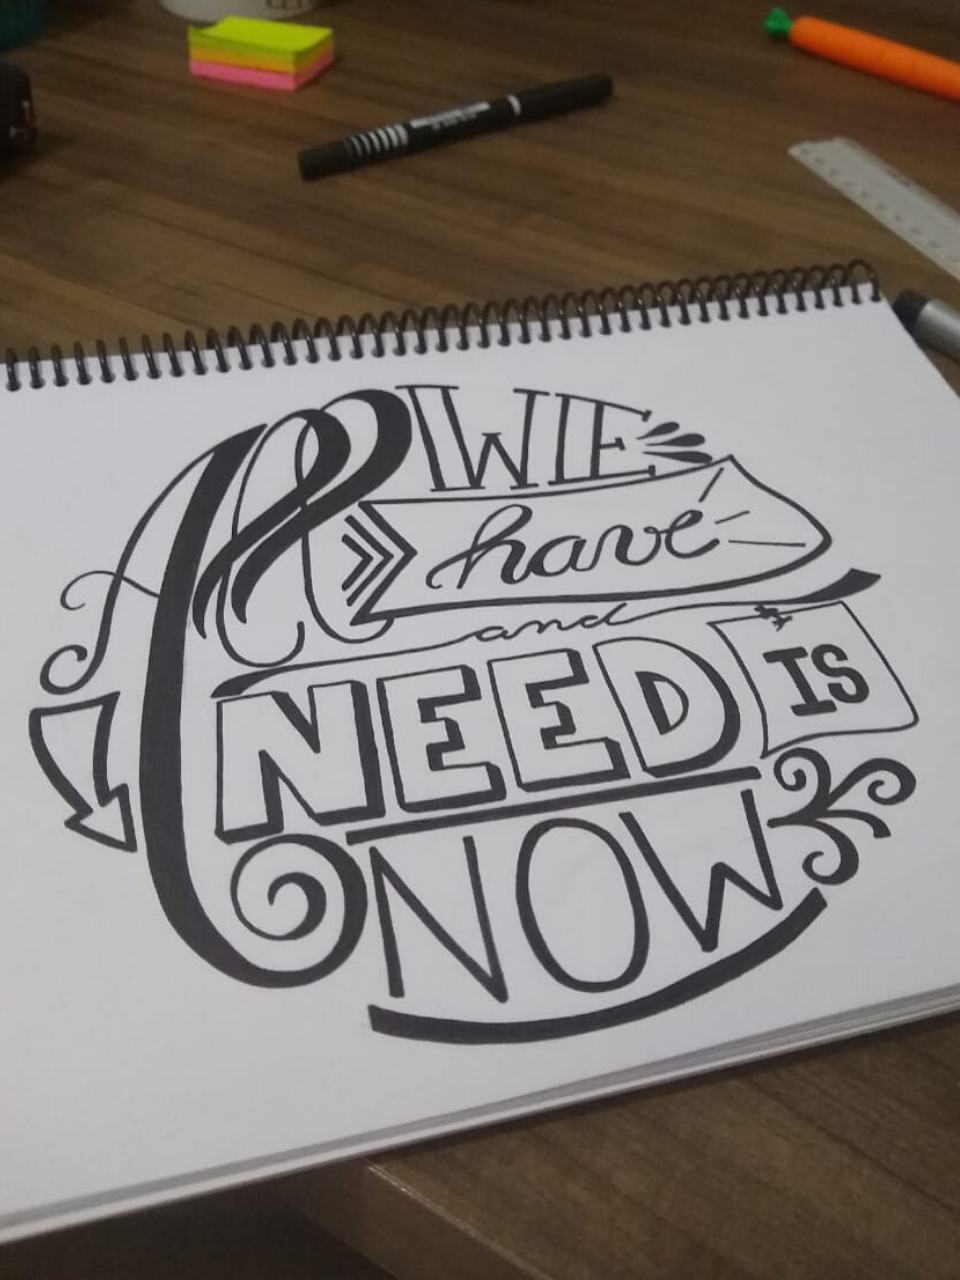 All WE
have
and
NEED IS
NOW